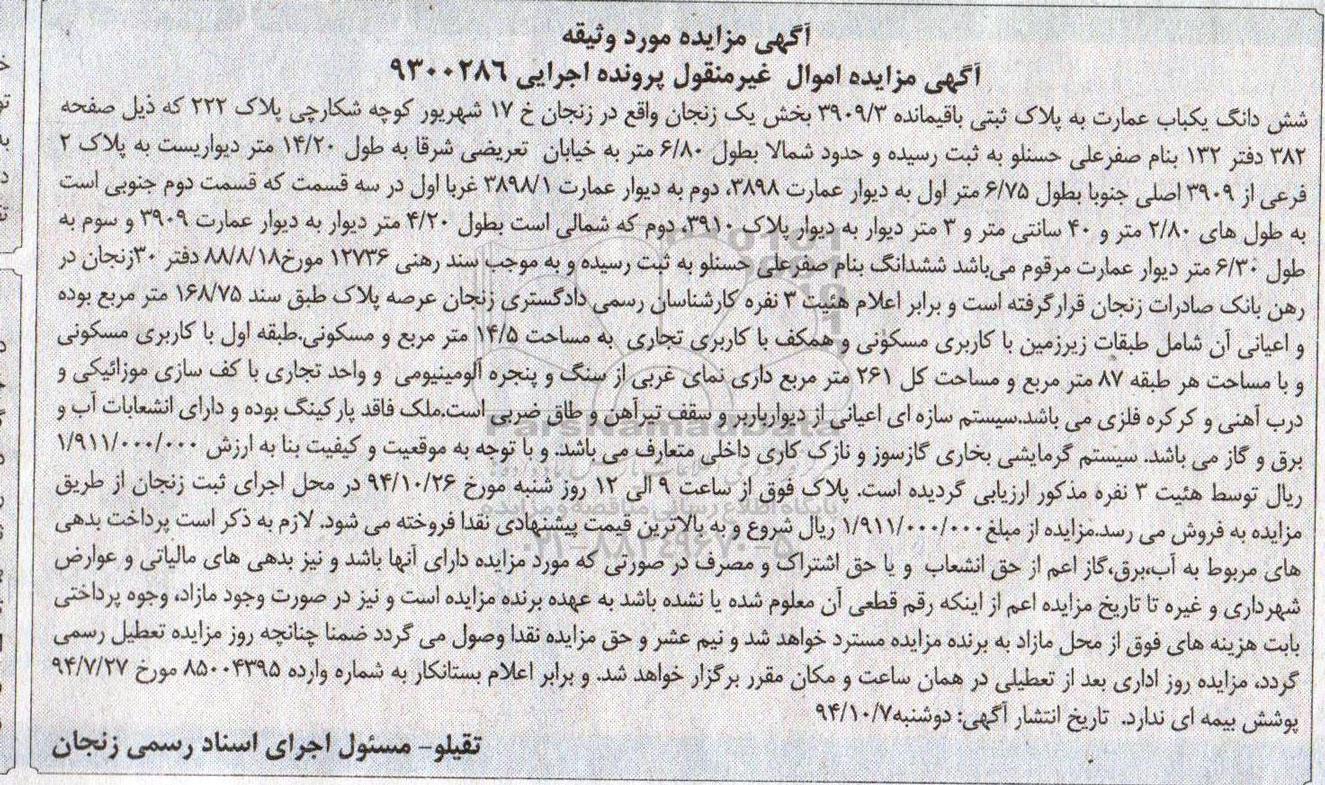 آگهی مزایده مورد وثیقه
آگهی مزایده اموال غیرمنقول پرونده اجرایی ۹۳۰۰۲۸۶
شش دانگ یکباب عمارت به پلاک ثبتی باقیمانده ۳۹۰۹/۳ بخش یک زنجان واقع در زنجان خ ۱۷ شهریور کوچه شکارچی پلاک ۲۲۲ که ذیل صفحه
۳۸۲ دفتر ۱۳۲ بنام صفرعلی حسنلو به ثبت رسیده و حدود شمالا بطول ۶/۸۰ متر به خیابان تعریضی شرقا به طول ۱۴/۲۰ متر دیواریست به پلاک ۲
فرعی از ۳۹۰۹ اصلی جنوبا بطول ۶/۷۵ متر اول به دیوار عمارت ۳۸۹۸، دوم به دیوار عمارت ۳۸۹۸/۱ غربا اول در سه قسمت که قسمت دوم جنوبی است
به طول های ۲/۸۰ متر و ۴۰ سانتی متر و ۳ متر دیوار به دیوار پلاک ۳۹۱۰، دوم که شمالی است بطول ۴/۲۰ متر دیوار به دیوار عمارت ۳۹۰۹ و سوم به
طول ۶/۳۰ متر دیوار عمارت مرقوم می‌باشد ششدانگ بنام صفرعلی حسنلو به ثبت رسیده و به موجب سند رهنی ۱۲۷۳۶ مورخ۸۸/۸/۱۸ دفتر ۳۰زنجان در
رهن بانک صادرات زنجان قرارگرفته است و برابر اعلام هئیت ۳ نفره کارشناسان رسمی دادگستری زنجان عرصه پلاک طبق سند ۱۶۸/۷۵ متر مربع بوده
و اعیانی آن شامل طبقات زیرزمین با کاربری مسکونی و همکف با کاربری تجاری به مساحت ۱۴/۵ متر مربع و مسکونی.طبقه اول با کاربری مسکونی
و با مساحت هر طبقه ۸۷ متر مربع و مساحت کل ۲۶۱ متر مربع داری نمای غربی از سنگ و پنجره آلومینیومی و واحد تجاری با کف سازی موزائیکی و
درب آهنی و کرکره فلزی می باشد.سیستم سازه ای اعیانی از دیوارباربر و سقف تیرآهن و طاق ضربی است.ملک فاقد پارکینگ بوده و دارای انشعابات آب و
برق و گاز می باشد. سیستم گرمایشی بخاری گازسوز و نازک کاری داخلی متعارف می باشد. و با توجه به موقعیت و کیفیت بنا به ارزش ۱/۹۱۱/۰۰۰/۰۰۰
ریال توسط هئیت ۳ نفره مذکور ارزیابی گردیده است. پلاک فوق از ساعت ۹ الی ۱۲ روز شنبه مورخ ۹۴/۱۰/۲۶ در محل اجرای ثبت زنجان از طریق
مزایده به فروش می رسد.مزایده از مبلغ۱/۹۱۱/۰۰۰/۰۰۰ ریال شروع و به بالاترین قیمت پیشنهادی نقدا فروخته می شود. لازم به ذکر است پرداخت بدهی
های مربوط به آب،برق،گاز اعم از حق انشعاب و یا حق اشتراک و مصرف در صورتی که مورد مزایده دارای آنها باشد و نیز بدهی های مالیاتی و عوارض
شهرداری و غیره تا تاریخ مزایده اعم از اینکه رقم قطعی آن معلوم شده یا نشده باشد به عهده برنده مزایده است و نیز در صورت وجود مازاد، وجوه پرداختی
بابت هزینه های فوق از محل مازاد به برنده مزایده مسترد خواهد شد و نیم عشر و حق مزایده نقدا وصول می گردد ضمنا چنانچه روز مزایده تعطیل رسمی
گردد، مزایده روز اداری بعد از تعطیلی در همان ساعت و مکان مقرر برگزار خواهد شد. و برابر اعلام بستانکار به شماره وارده ۸۵۰۰۴۳۹۵ مورخ ۹۴/۷/۲۷
پوشش بیمه ای ندارد. تاریخ انتشار آگهی: دوشنبه۹۴/۱۰/۷
تقیلو- مسئول اجرای اسناد رسمی زنجان